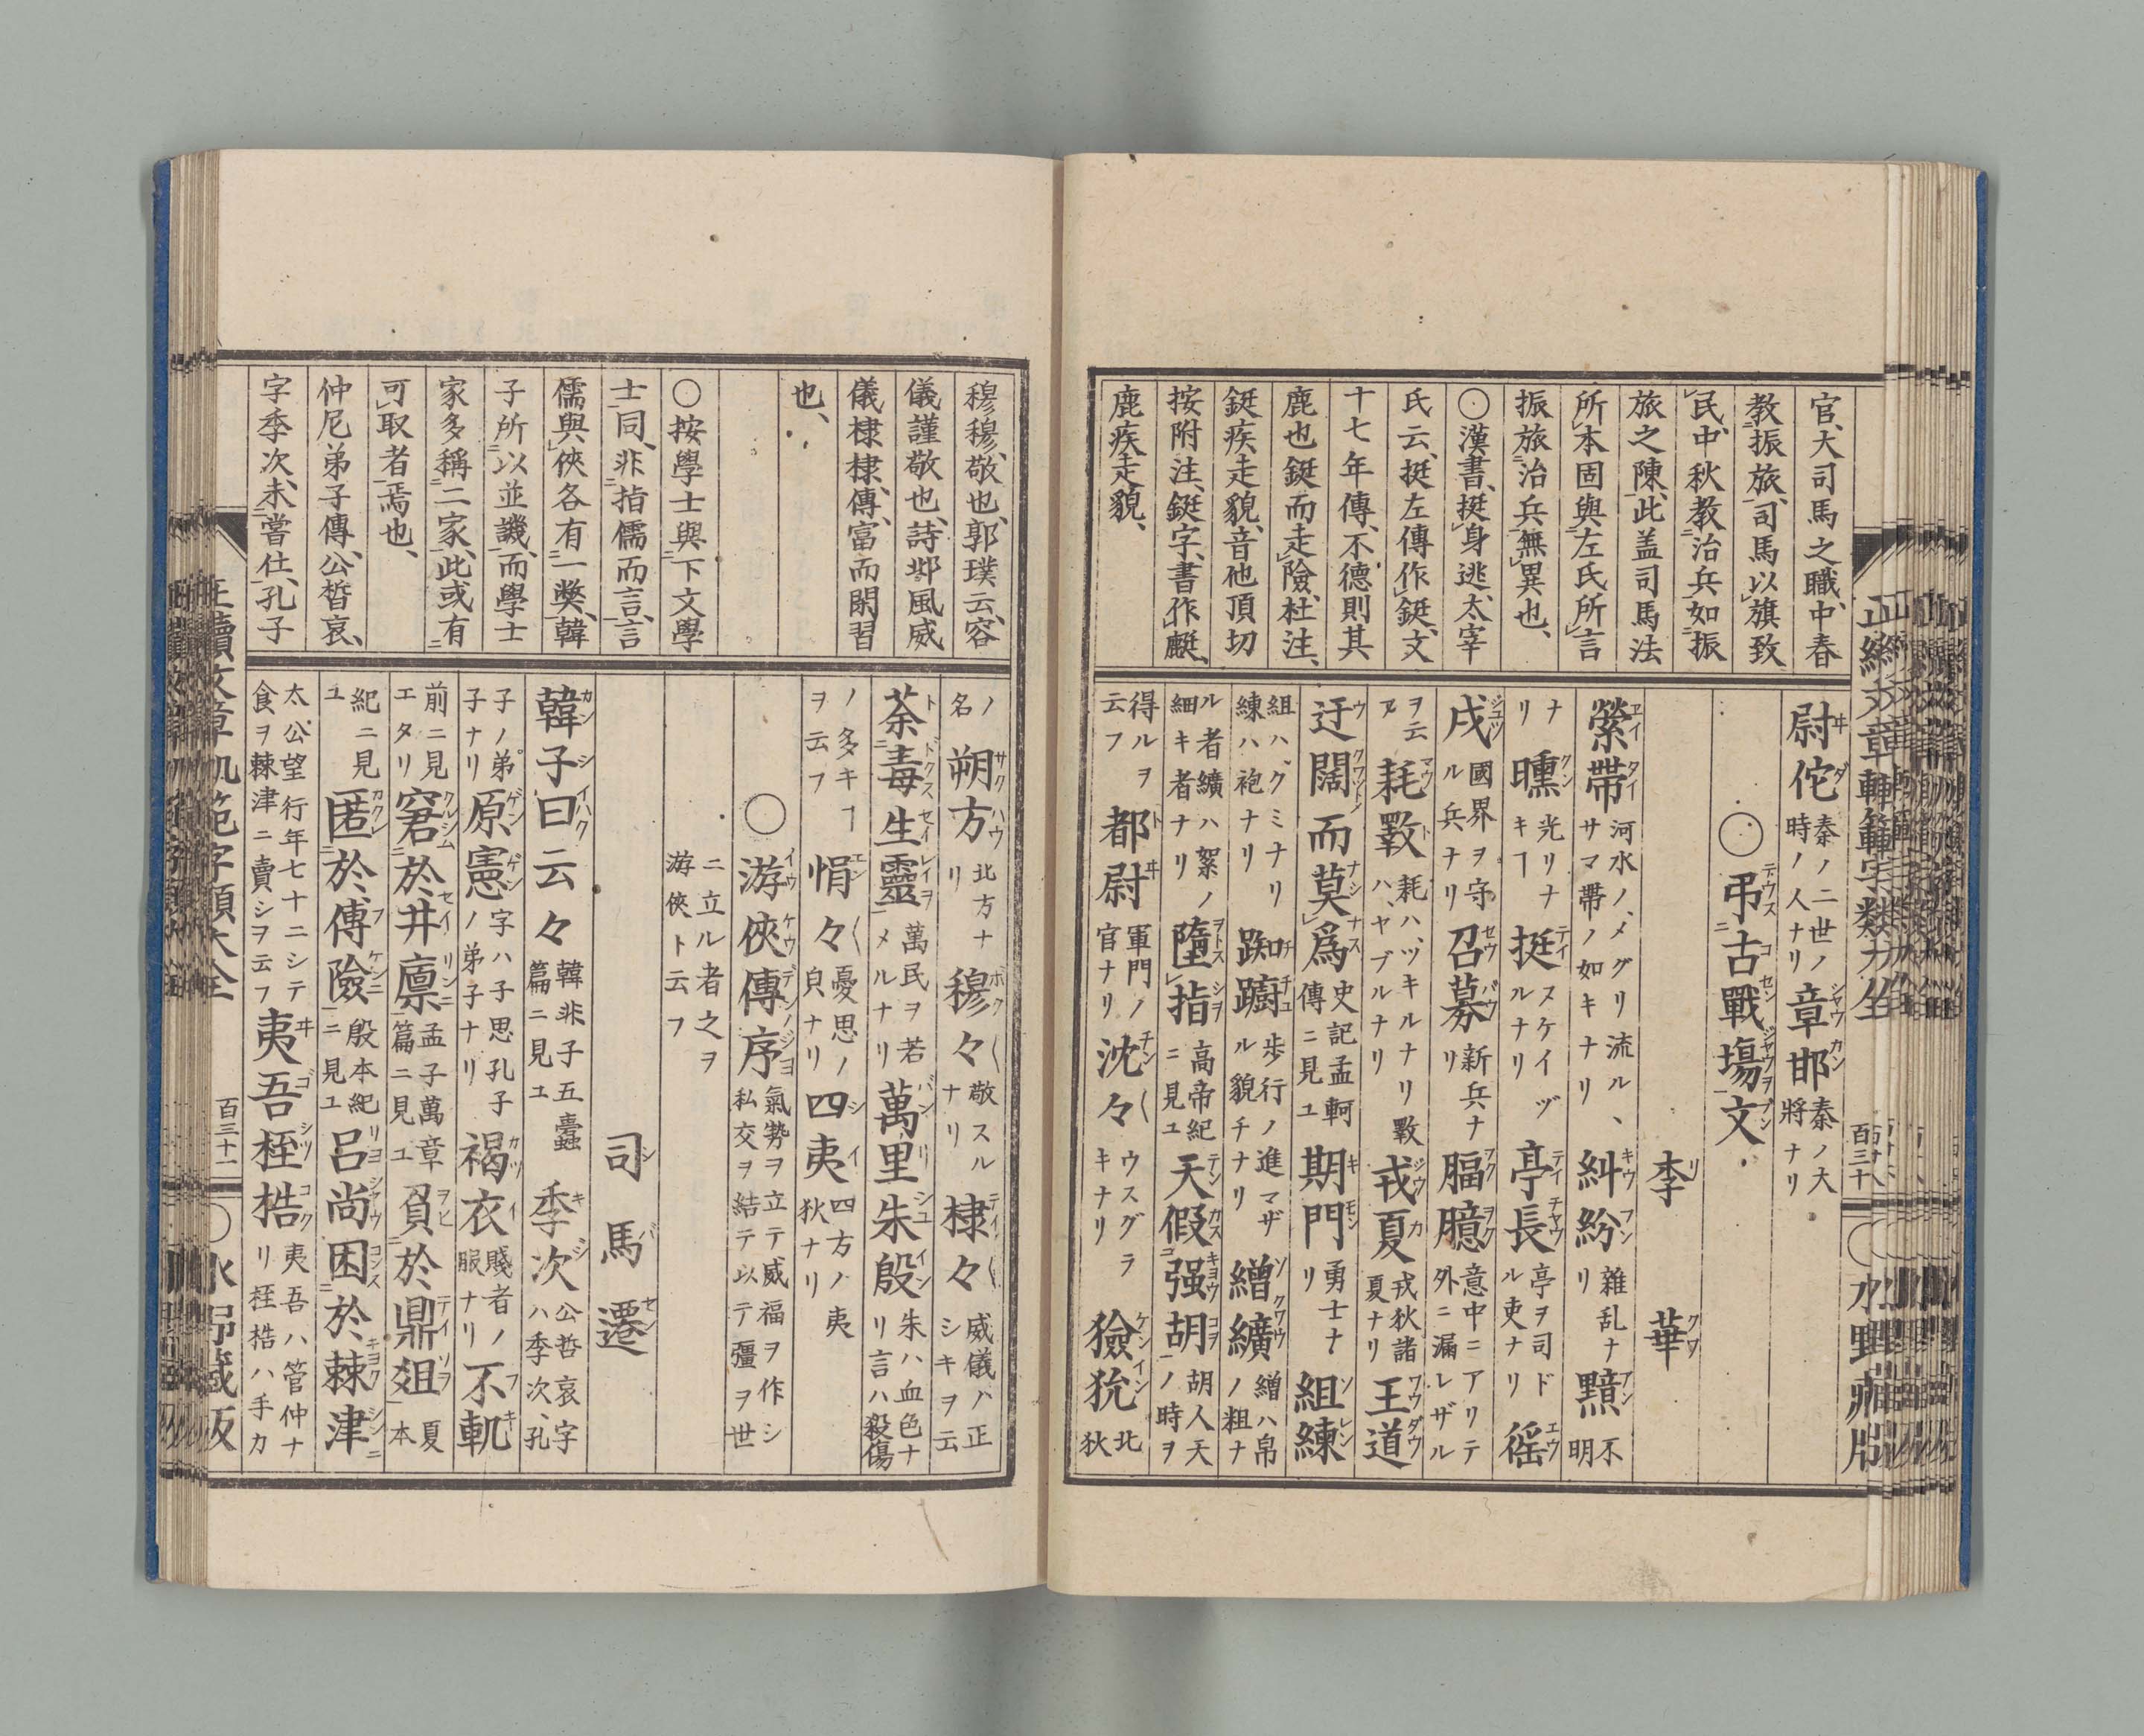 官、大司馬之職、中春
教振旅、司馬以旗致
民、中秋教治兵、如振
旅之陳、此盖司馬法
所本固與左氏所言
振旅治兵無異也、
○漢書、挺身逃、太宰
氏云、挺左傳作鋌、文
十七年傳、不德則其
鹿也鋌而走險、杜注、
鋌疾走貌、音他頂切
按附注、鋌字、書作䴄、
鹿疾走貌、
尉佗 秦ノ二世ノ時ノ人ナリ 章邯 秦ノ大將ナリ
○弔古戰塲文
李華
縈帶 河水ノメグリ流ル、サマ帶ノ如キナリ 糾紛 雜乱ナリ 黯 不明
ナリ 曛 光リナキヿ 挺 ヌケイヅルナリ 亭長 亭ヲ司ドル吏ナリ 徭
戍 國界ヲ守ル兵ナリ 召募 新兵ナリ 腷臆 意中ニアリテ外ニ漏レザル
ヲ云フ 耗斁 耗ハ、ツキルナリ斁ハ、ヤブルナリ 戎夏 戎狄諸夏ナリ 王道
迂闊而莫爲 史記孟軻傳ニ見ユ 期門 勇士ナリ 組練
組ハ、クミナリ練ハ袍ナリ 踟躕 歩行ノ進マザル貌チナリ 繒纊 繒ハ帛ノ粗ナ
ル者纊ハ絮ノ細キ者ナリ 墮指 高帝紀ニ見ユ 天假强胡 胡人天ノ時ヲ
得ルヲ云フ 都尉 軍門ノ官ナリ 沈々 ウスグラキナリ 獫狁 北狄
正續文章軌範字類大全
百三十
○水野藏版
穆穆、敬也、郭璞云、容
儀謹敬也、詩邶風威
儀棣棣、傳、富而閑習
也、
○按學士與下文學
士同、非指儒而言、言
儒與俠各有一獘、韓
子所以並譏、而學士
家多稱二家、此或有
可取者焉也、
仲尼弟子傳、公晳哀、
字季次、未嘗仕、孔子
ノ名 朔方 北方ナリ 穆々 敬スルナリ 棣々 威儀ノ正シキヲ云
荼毒生靈 萬民ヲ若メルナリ 萬里朱殷 朱ハ血色ナリ言ハ殺傷
ノ多キヿヲ云フ 悁々 憂思ノ貝ナリ 四夷 四方ノ夷狄ナリ
○游俠傳序 氣勢ヲ立テ威福ヲ作シ私交ヲ結テ以テ彊ヲ世
ニ立ル者之ヲ游俠ト云フ
司馬遷
韓子曰云々 韓非子五蠹篇ニ見ユ 季次 公晢哀字ハ季次、孔
子ノ弟子ナリ 原憲 字ハ子思孔子ノ弟子ナリ 褐衣 賤者ノ服ナリ 不軌
前ニ見エタリ 窘於井廩 孟子萬章篇ニ見ユ 負於鼎爼 夏本
紀ニ見ユ 匿於傅險 殷本紀ニ見ユ 呂尚困於棘津
太公望行年七十ニシテ食ヲ棘津ニ賣シヲ云フ 夷吾桎梏 夷吾ハ管仲ナリ桎梏ハ手カ
正續文章軌範字類大全
百三十一
○水野藏版